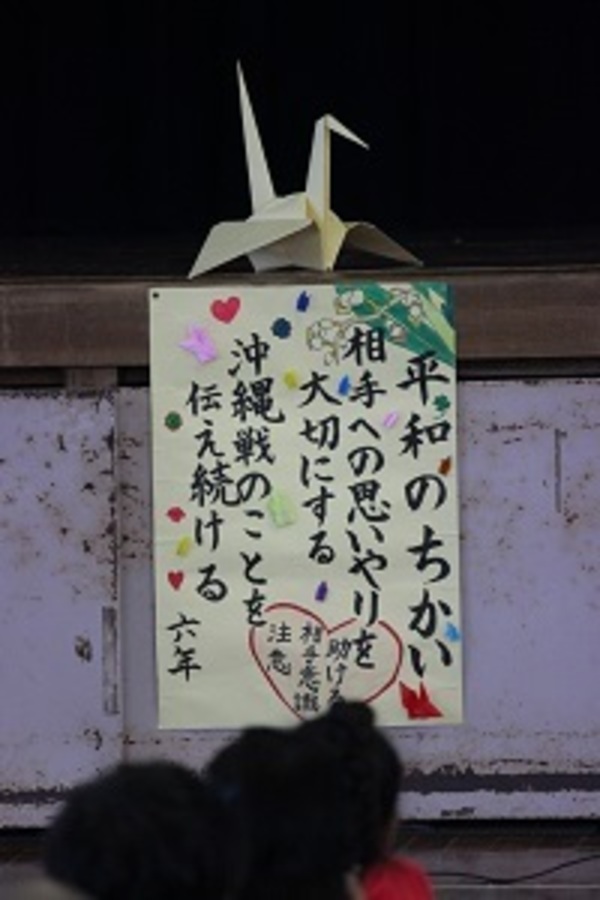 平和のちかい
相手への思いやりを
大切にする
沖縄戦のことを
伝え続ける
六年
助ける
相手意識
注意